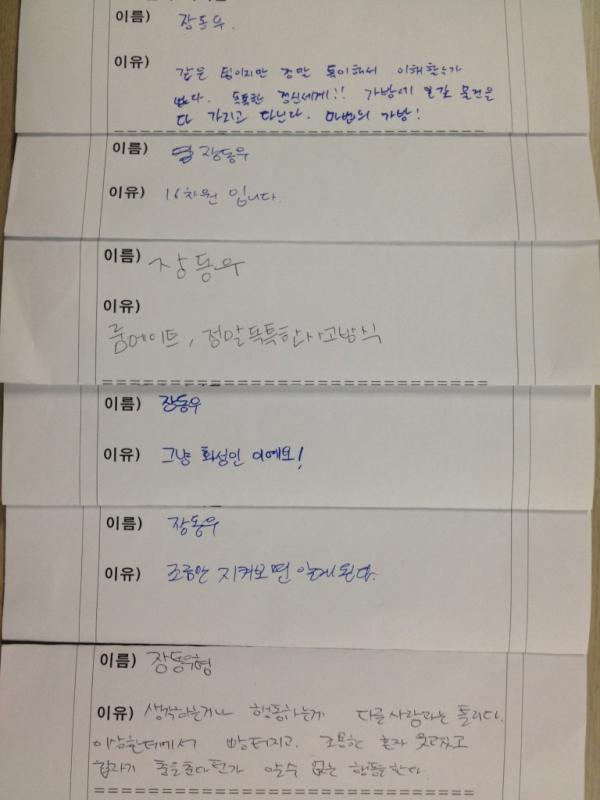 이름) 장동우.
이유) 같은 팀이지만 정말 특이해서 이해할수가
없다. 독특한 정신세계!! 가방에 온갖 물건을
다 가지고 다닌다. 마법의 가방!
이름) 장동우
이유) 16차원 입니다.
이름) 장동우
이유)
룸메이트, 정말독특한사고방식
이름) 장동우
이유) 그냥 화성인 이예요!
이름) 장동우
이유) 조금만 지켜보면 알게된다.
이름) 장동우형
이유) 생각하는거나 행동하는게 다른사람과는 틀리다.
이상한데에서 빵터지고. 조용한 혼자 웃고있고
갑자기 춤을춘다던가 알수 없는 행동을한다.